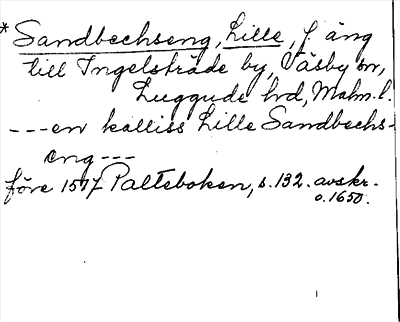 * Sandbechseng, Lille, f. äng
till Ingelsträde by, Väsby sn,
Luggude hrd, Malm. l.
---en kalliss Lille Sandbechs-
eng---
före 1517 Palteboken, s. 132. avskr.
o. 1650.